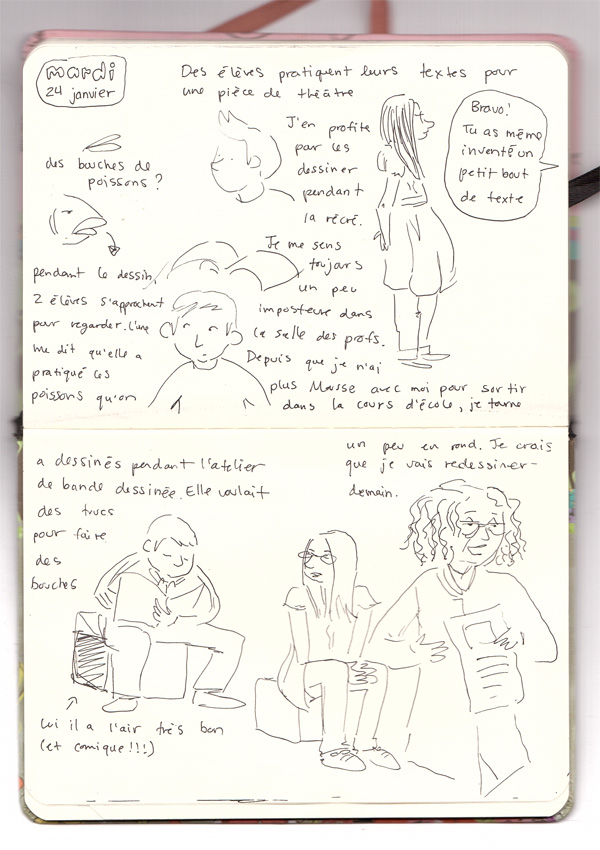 mardi
24 janvier
Des élèves pratiquent leurs textes pour
une pièce de théâtre
J'en profite
par les
dessiner
pendant
la récré.
Bravo!
Tu as même
inventé un
petit bout
de texte
des bouches de
poissons?
Je me sens
toujours
un peu
imposteure dans
la salle des profs.
Depuis que je n'ai
plus Mausse avec moi pour sortir
dans la cours d'école, je tourne
un peu en rond. Je crois
que je vais redessiner
demain.
pendant le dessin,
2 élèves s'approchent
pour regarder. L'une
me dit qu'elle a
pratiqué les
poissons qu'on
a dessinés pendant l'atelier
de bande dessinée. Elle voulait
des trucs
pour faire
des
bouches
Lui il a l'air très bon
(et comique!!!)